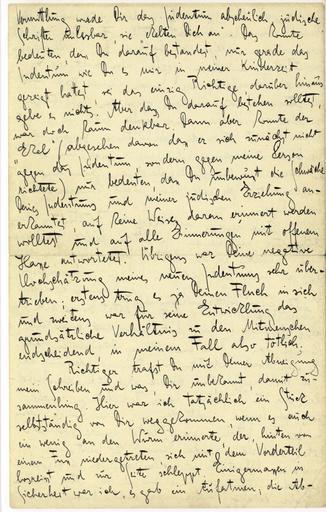 Vermittlung wurde Dir das Judentum abscheulich, jüdische
Schriften unlesbar, sie ekelten Dich an". Das konnte
bedeuten, dass Du darauf bestandest, nur gerade das
Judentum wie Du es mir in meiner Kinderzeit
gezeigt hattest sei das einzig Richtige, darüber hinaus
gebe es nichts. Aber dass Du darauf bestehen solltest,
war doch kaum denkbar. Dann aber konnte der
"Ekel" (abgesehen davon dass er sich zunächst nicht
gegen das Judentum sondern gegen meine Person
richtete) nur bedeuten, dass Du unbewusst die Schwäche
Deines Judentums und meiner jüdischen Erziehung an-
erkanntest, auf keine Weise daran erinnert werden
wolltest und auf alle Erinnerungen mit offenem
Hasse antwortetest. Übrigens war Deine negative
Hochschätzung meines neuen Judentums sehr über-
trieben; erstens trug es ja Deinen Fluch in sich
und zweitens war für seine Entwicklung das
grundsätzliche Verhältnis zu den Mitmenschen
entscheidend, in meinem Fall also tötlich.
Richtiger trafst Du mit Deiner Abneigung
mein Schreiben und was, Dir unbekannt, damit zu-
sammenhieng. Hier war ich tatsächlich ein Stück
selbständig von Dir weggekommen, wenn es auch
ein wenig an den Wurm erinnerte, der, hinten von
einem Fuss niedergetreten, sich mit dem Vorderteil
losreisst und zur Seite schleppt. Einigermassen in
Sicherheit war ich, es gab ein Aufatmen; die Ab-